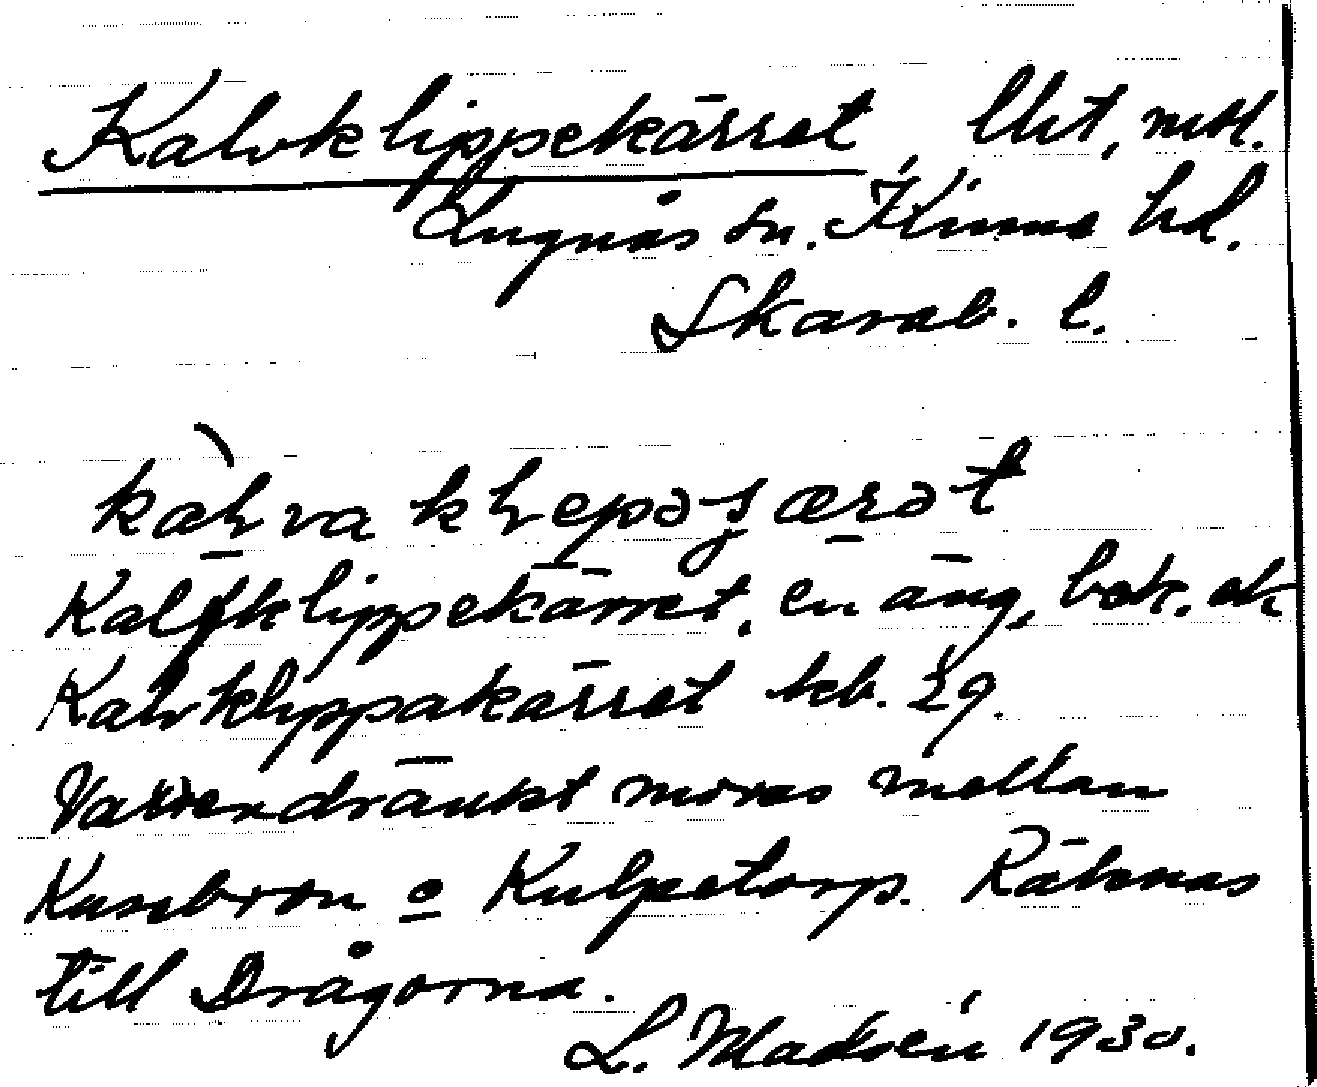 Kalvklippekärret, Utt, mtl.
Lugnås sn. Kinne hd.
Skarab. l.
kaḷva kḷepəʒærət
Kalfklippekärret, en äng, bok. ok
Kalvklippakärret kb. 29.
Vattendränkt moras mellan
Kusebron o Kulpetorp. Räknas
till Drågorna.
L. Madsén 1930.